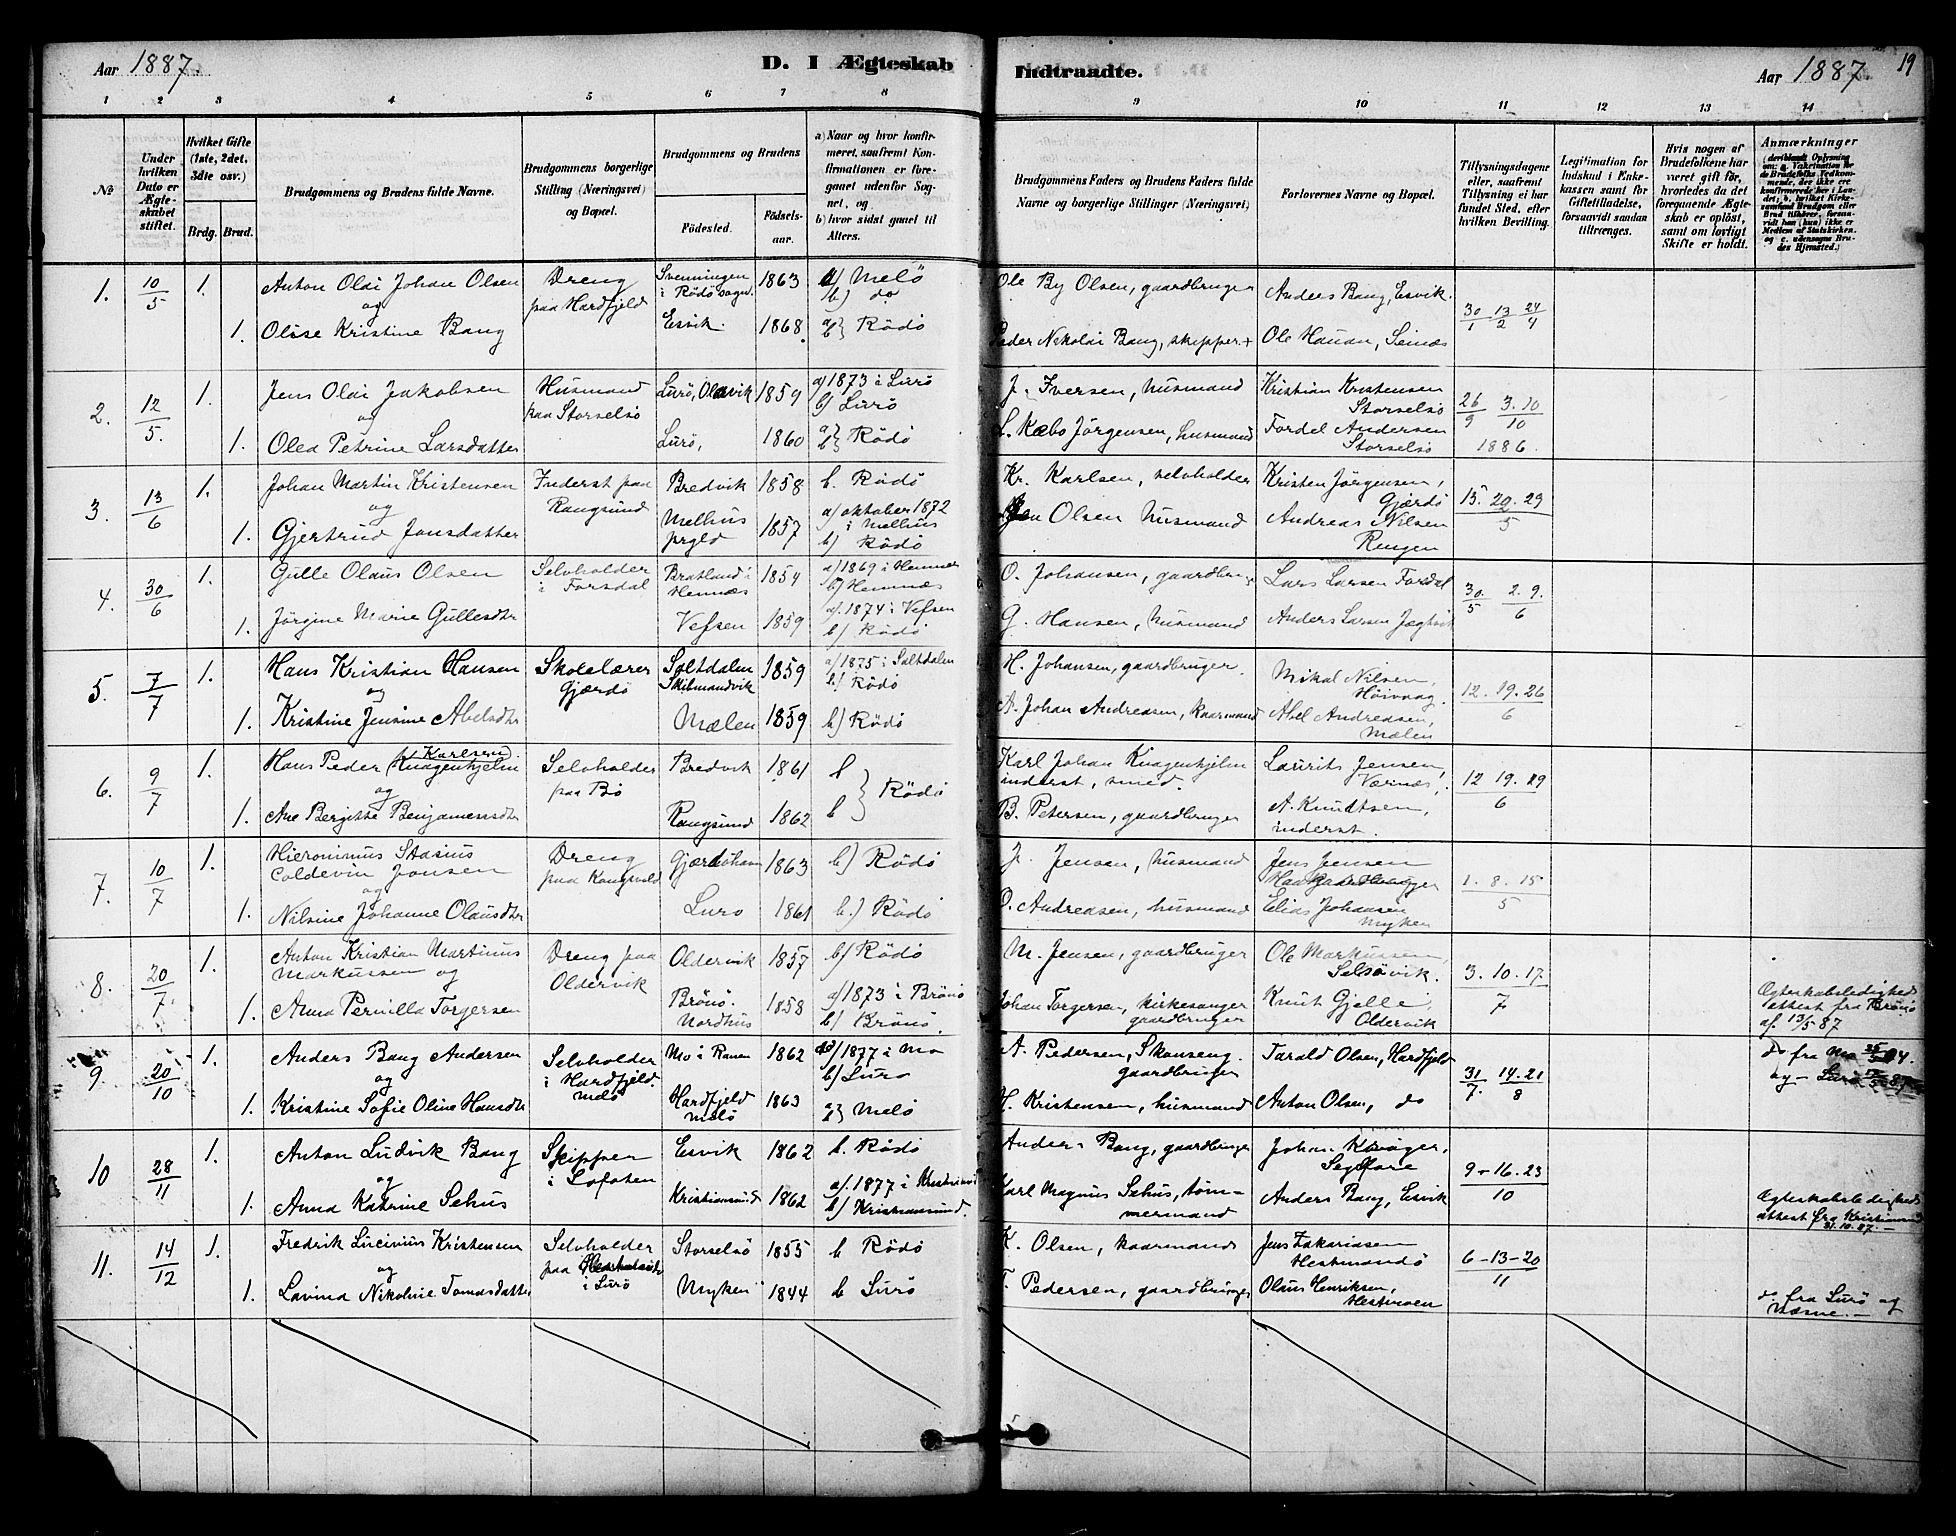 Aar 1887.
D. I Ægteskab Indtraadte.
Aar 1887. 19
1 2 3 4 5 6 7 8 9 10 11 12 13 14
№
Under hvilken Dato er Ægteskabet stiftet.
Hvilket Gifte (1ste, 2det, 3die osv.)
Brdg. Brud.
Brudgommens og Brudens fulde Navne.
Brudgommens borgerlige Stilling (Næringsvei) og Bopæl.
Brudgommens og Brudens
Födested. Födselsaar.
a) Naar og hvor konfirmeret, saafremt Konfirmationen er foregaaet udenfor Sognet, og
b) hvor sidst gaaet til Alters.
Brudgommens Faders og Brudens Faders fulde Navne og borgerlige Stillinger (Næringsvei)
Forlovernes Navne og Bopæl.
Tillysningsdagene eller, saafremt Tillysning ei har fundet Sted, efter hvilken Bevilling.
Legitimation for Indskud i Enkekassen samt for Giftetilladelse, forsaavidt saadan tiltrænges.
Hvis nogen af Brudefolkene har været gift för, hvorledes da det foregaaende Ægteskab er oplöst, samt om lovligt Skifte er holdt.
Anmærkninger
1. 10/5 1. Anton Olai Johan Olsen Dreng Svenningen 1863 a) Melö Ole By Olsen, gaardbruger Anders Bang, Esvik. 30/1 13/2 24/4
og paa Hardfjeld i Rödö sogn. b) do
1. Olise Kristine Bang Esvik. 1868. a) b) Rödö Peder Nikolai Bang, skipper + Ole Hauan, Seinæs
2. 12/5. 1. Jens Olai Jakobsen Husmand Lurö, Olasvik 1859 a) 1873 i Lurö J. Iversen, husmand Kristian Kristensen 26/9 3.10/10
og paa Storselsö b) Lurö Storselsö
1. Olea Petrine Larsdatter Lurö, 1860 a) b) Rödö L. Kæbo Jörgensen, husmand Fordel Andersen 1886.
Storselsö
3. 13/6 1. Johan Martin Kristensen Inderst paa Bredvik 1858 b. Rödö Kr. Karlsen, selvholder Kristen Jörgensen, 15. 20. 29/5
og Rangsund a) oktober 1872 Gjærdö
1. Gjertrud Jonsdatter Melhus prgld 1857 i Melhus Jon Olsen husmand Andreas Nilsen
b) Rödö Rengen
4. 30/6 1. Gulle Olaus Olsen Selvholder Bratland i 1854 a) 1869 i Hemnæs O. Johansen, gaardbruger Lars Larsen Fordal 30/5 2. 9./6
i Forsdal Hemnæs b) Hemnæs
1. Jörgine Marie Gullesdtr Vefsen 1859 a). 1874 i Vefsen G. Hansen, husmand Anders Larsen Jegtvik
b) Rödö
5. 7/7 1. Hans Kristian Hansen Skolelærer Saltdalen 1859 a) 1875 i Saltdalen H. Johansen, gaardbruger. Mikal Nilsen, 12. 19. 26/6
og Gjærdö Skibmandvik b) Rödö Höivaag.
1. Kristine Jensine Abelsdtr Mælen 1859 b) Rödö A. Johan Andreasen, kaarmand Abel Andreasen,
Mælen
6. 9/7 1. Hans Peder Knagenhjelm Karlsen Selvholder Bredvik 1861 b Karl Johan Knagenhjelm Laurits Jensen, 12 19. 29/6
og paa Bö Rödö inderst, smed. Værnæs,
1. Ane Bergitte Benjaminsdtr Rangsund 1862 b B. Petersen, gaardbruger A. Knudtsen,
inderst.
7. 10/7 1. Hieronimus Stasius Dreng Gjærdöhavn 1863 b) Rödö J. Jensen, husmand Jens Jensen 1. 8. 15/5
Coldevin Jonsen paa Rangsvold
og
1. Nilsine Johanne Olausdtr Lurö 1861 b.) Rödö O. Andreasen, husmand Elias Johansen
Myken
8. 20/7. 1. Anton Kristian Martinus Dreng paa Oldervik 1857 b) Rödö M. Jensen, gaardbruger Ole Markussen, 3. 10. 17/7
Markussen og Oldervik Selsövik.
1. Anna Pernilla Torgersen Brönö. 1858 a) 1873 i Brönö Johan Torgersen, kirkesanger Knut Gjelle, Ægteskabsledigheds
Nordhus b) Brönö. gaardbruger Oldervik attest fra Brönö
af. 13/5 87
9 20/10 1. Anders Bang Andersen Selvholder Mo i Ranen 1862 a) 1877 i Mo A. Pedersen, Skonseng. Tarald Olsen, Hardfjeld 31/7. 14. 21/8 do fra Mo
og i Hardfjeld. b) Lurö gaardbruger og – Lurö
1. Kristine Sofie Oline Hansdtr Melö Hardfjeld Melö 1863 a) b) Melö H. Kristensen, husmand Anton Olsen, do
10 28/11 1. Anton Ludvik Bang Skipper Esvik 1862 b. Rödö Anders Bang, gaardbruger Johan Kröger, 9 – 16. 23/10
og i Lofoten a). 1877 i Kristiansund Segelfore
1. Anna Katrine Sehus Kristiansund 1862 b) Kristiansund. Karl Magnus Sehus, tømmermand Anders Bang, Esvik Ægteskabsledigheds
attest fra Kristiansund
31.10.87.
11. 14/12 1. Fredrik Lucinius Kristensen Selvholder Storselsö 1855 b Rödö K. Olsen, kaarmand Jens Zakariasen 6 – 13 – 20/11
og paa i Lurö Hestmandö
1. Lavina Nikoline Tomasdatter Myken 1844 b Lurö T. Pedersen, gaardbruger Olaus Henriksen, do fra Lurö og
Hestmoen Næsne. –